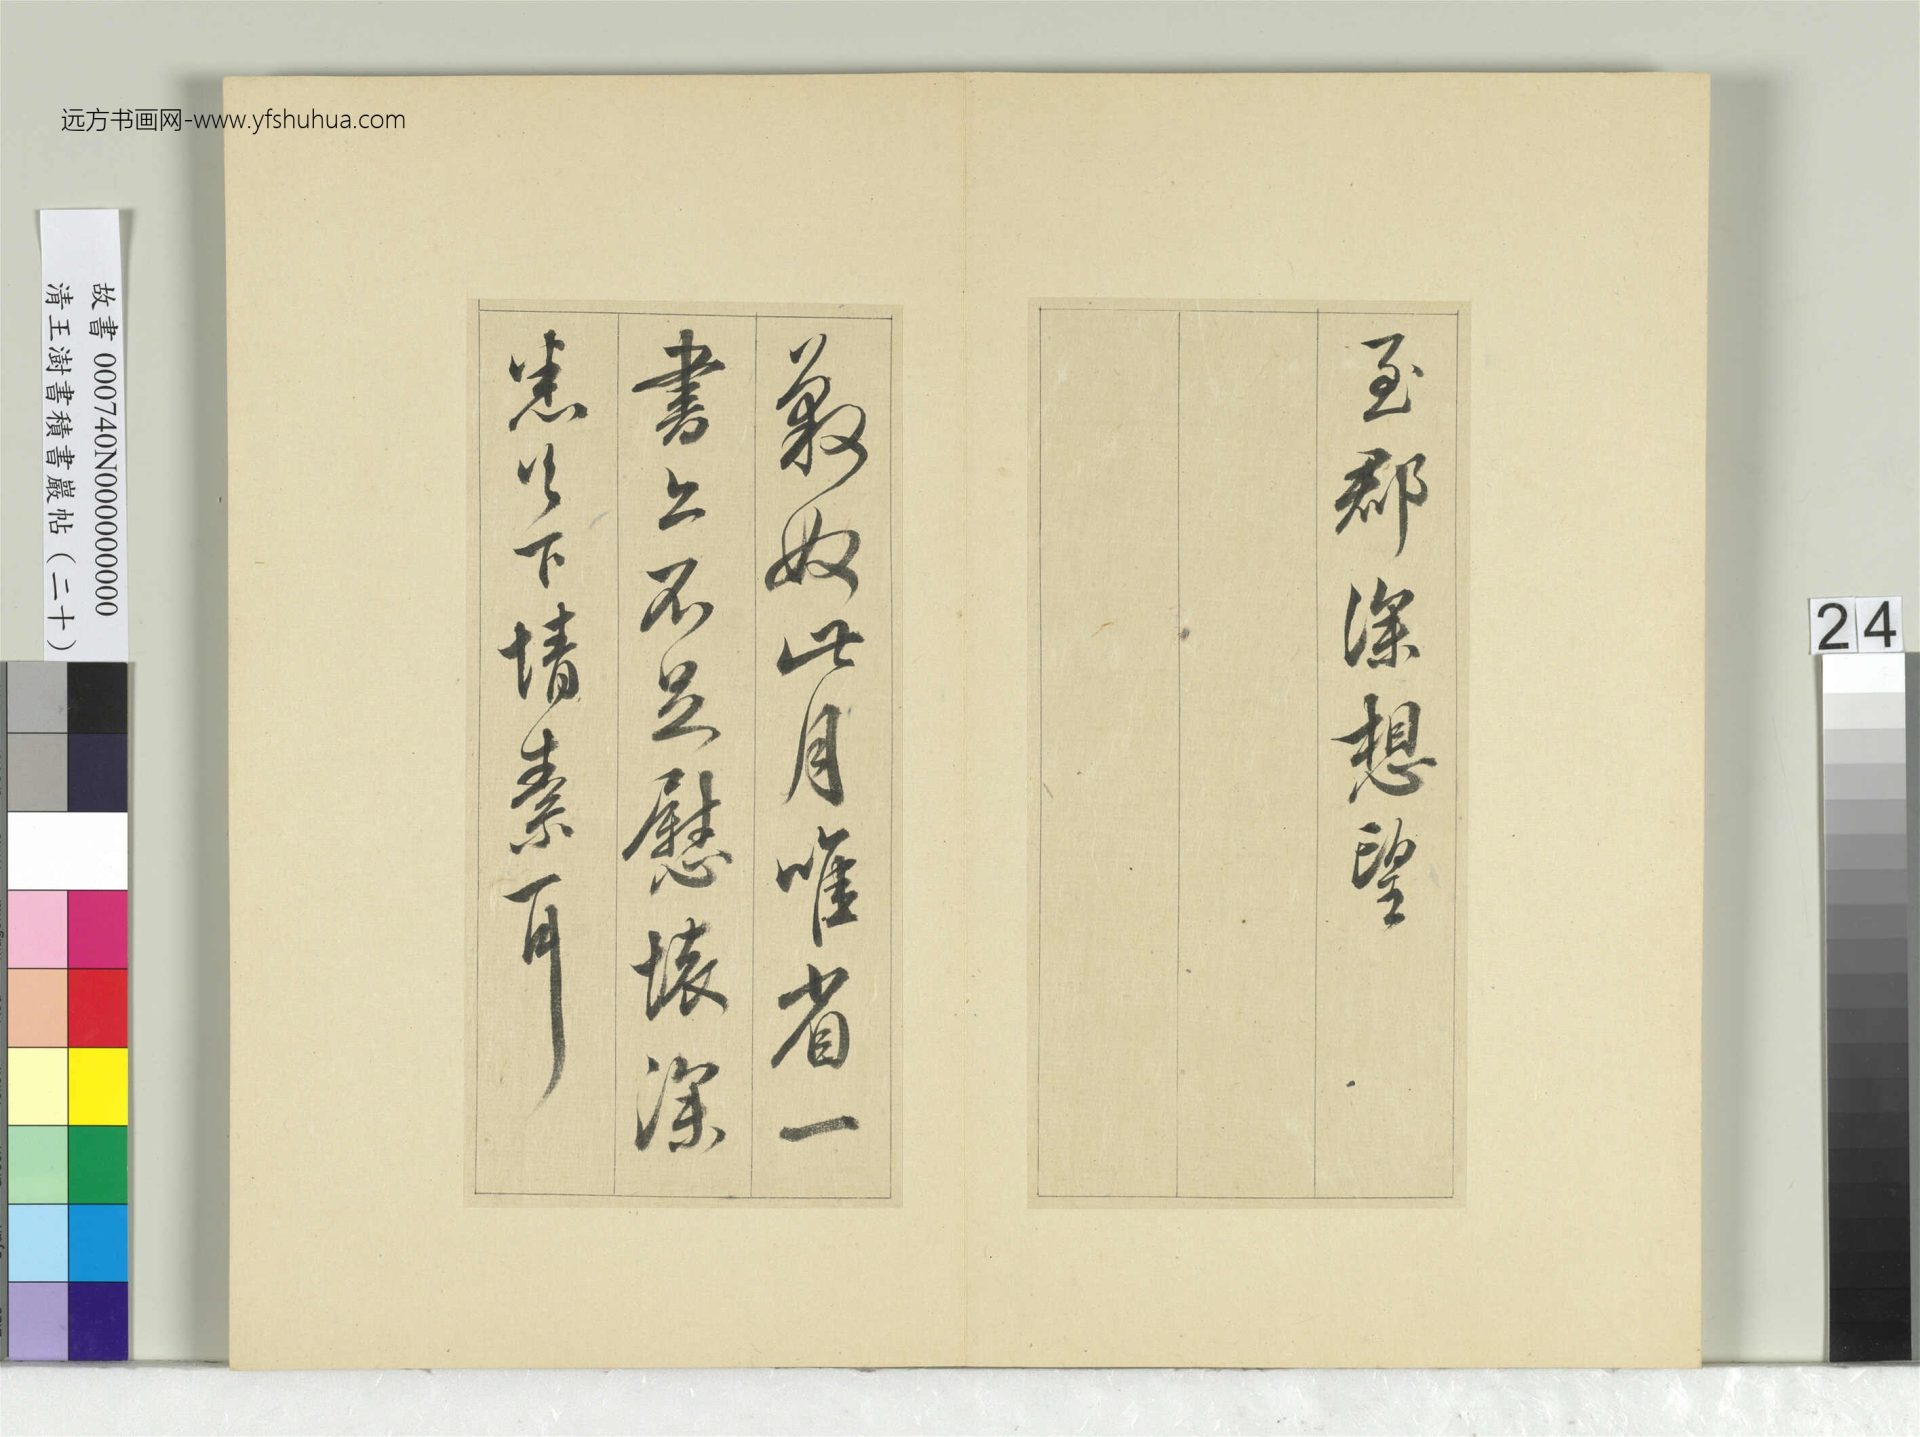 远方书画网-www.yfshuhua.com
至郡深想望
奴此月唯省一
書亦不足慰懷深
悉足下情素耳
故書 000740N000000000
清王澍書積書巖帖（二十）
24